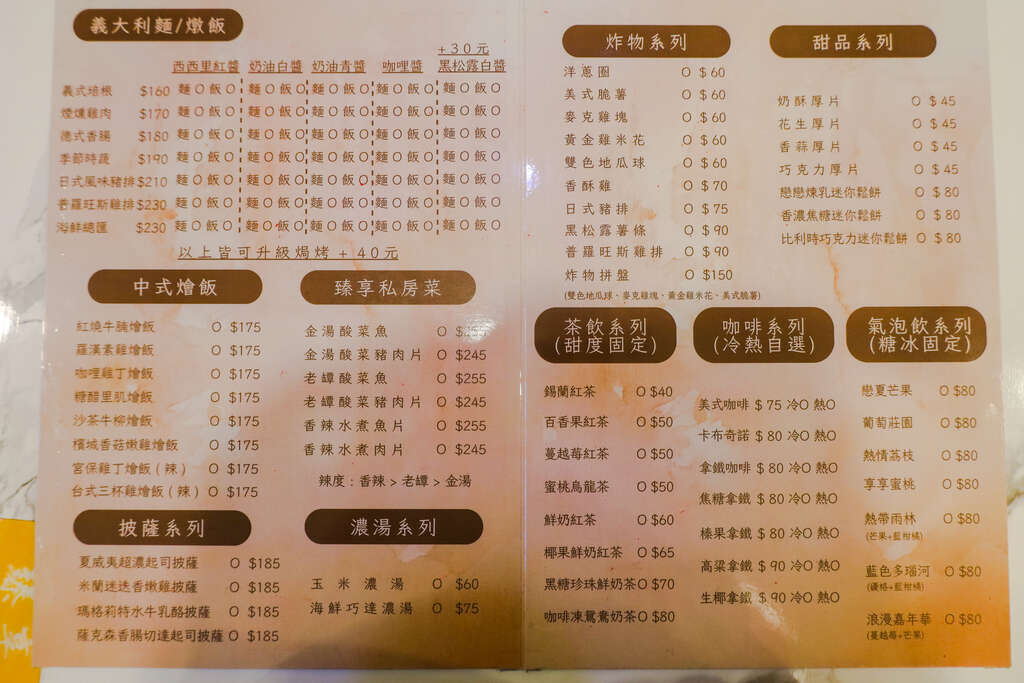 義大利麵/燉飯
+30元
西西里紅醬 奶油白醬 奶油青醬 咖哩醬 黑松露白醬
義式培根 $160 麵O飯O 麵O飯O 麵O飯O 麵O飯O 麵O飯O
煙燻雞肉 $170 麵O飯O 麵O飯O 麵O飯O 麵O飯O 麵O飯O
德式香腸 $180 麵O飯O 麵O飯O 麵O飯O 麵O飯O 麵O飯O
季節時蔬 $190 麵O飯O 麵O飯O 麵O飯O 麵O飯O 麵O飯O
日式風味豬排 $210 麵O飯O 麵O飯O 麵O飯O 麵O飯O 麵O飯O
普羅旺斯雞排 $230 麵O飯O 麵O飯O 麵O飯O 麵O飯O 麵O飯O
海鮮總匯 $230 麵O飯O 麵O飯O 麵O飯O 麵O飯O 麵O飯O
以上皆可升級焗烤 + 40元
中式燴飯
紅燒牛腩燴飯 O $175
羅漢素雞燴飯 O $175
咖哩雞丁燴飯 O $175
糖醋里肌燴飯 O $175
沙茶牛柳燴飯 O $175
檳城香菇嫩雞燴飯 O $175
宮保雞丁燴飯(辣) O $175
台式三杯雞燴飯(辣) O $175
臻享私房菜
金湯酸菜魚 O $255
金湯酸菜豬肉片 O $245
老譚酸菜魚 O $255
老譚酸菜豬肉片 O $245
香辣水煮魚片 O $255
香辣水煮肉片 O $245
辣度:香辣>老譚>金湯
披薩系列
夏威夷超濃起司披薩 O $185
米蘭迷迭香嫩雞披薩 O $185
瑪格莉特水牛乳酪披薩 O $185
薩克森香腸切達起司披薩 O $185
濃湯系列
玉米濃湯 O $60
海鮮巧達濃湯 O $75
炸物系列
洋蔥圈 O $60
美式脆薯 O $60
麥克雞塊 O $60
黃金雞米花 O $60
雙色地瓜球 O $60
香酥雞 O $70
日式豬排 O $75
黑松露薯條 O $90
普羅旺斯雞排 O $90
炸物拼盤 O $150
(雙色地瓜球、麥克雞塊、黃金雞米花、美式脆薯)
甜品系列
奶酥厚片 O $45
花生厚片 O $45
香蒜厚片 O $45
巧克力厚片 O $45
戀戀煉乳迷你鬆餅 O $80
香濃焦糖迷你鬆餅 O $80
比利時巧克力迷你鬆餅 O $80
茶飲系列
(甜度固定)
錫蘭紅茶 O $40
百香果紅茶 O $50
蔓越莓紅茶 O $50
蜜桃烏龍茶 O $50
鮮奶紅茶 O $60
椰果鮮奶紅茶 O $65
黑糖珍珠鮮奶茶 O $70
咖啡凍鴛鴦奶茶 O $80
咖啡系列
(冷熱自選)
美式咖啡 $75 冷O 熱O
卡布奇諾 $80 冷O 熱O
拿鐵咖啡 $80 冷O 熱O
焦糖拿鐵 $80 冷O 熱O
榛果拿鐵 $80 冷O 熱O
高粱拿鐵 $90 冷O 熱O
生椰拿鐵 $90 冷O 熱O
氣泡飲系列
(糖冰固定)
戀夏芒果 O $80
葡萄莊園 O $80
熱情荔枝 O $80
享享蜜桃 O $80
熱帶雨林 O $80
(芒果+藍柑橘)
藍色多瑙河 O $80
(優格+藍柑橘)
浪漫嘉年華 O $80
(蔓越莓+芒果)